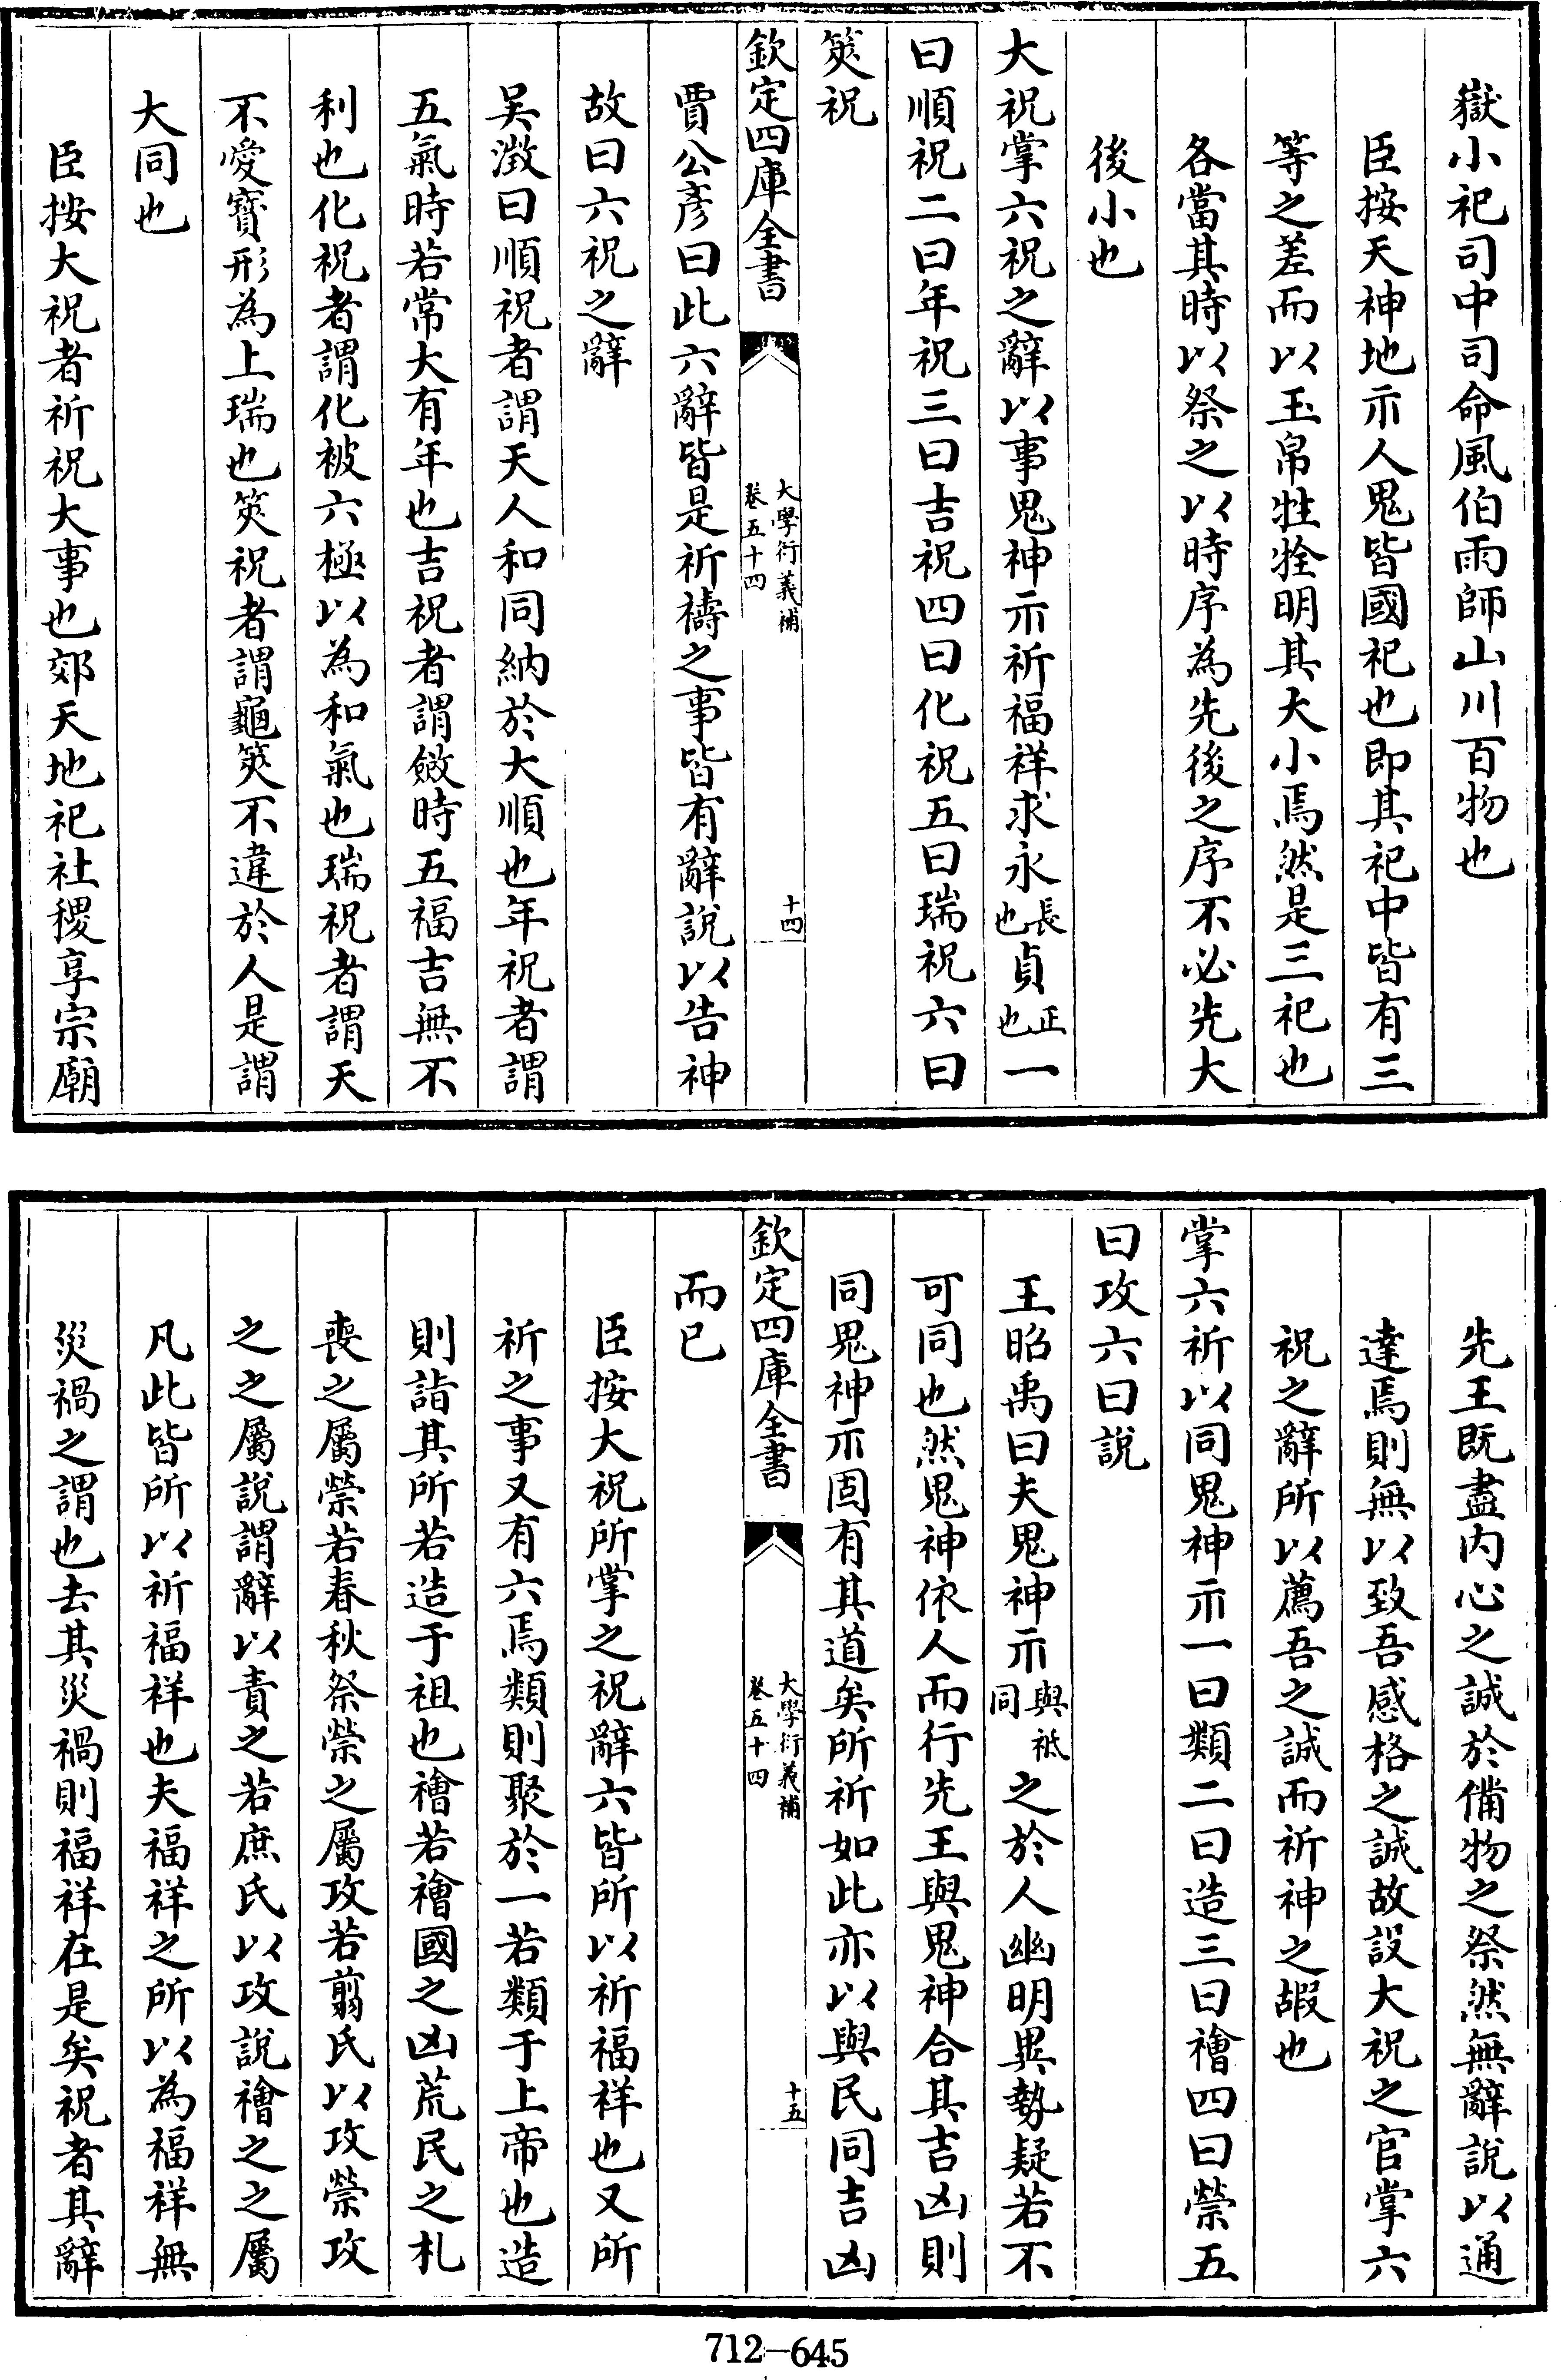 嶽小祀司中司命風伯雨師山川百物也
臣按天神地示人鬼皆國祀也即其祀中皆有三
等之差而以玉帛牲牷明其大小焉然是三祀也
各當其時以祭之以時序為先後之序不必先大
後小也
大祝掌六祝之辭以事鬼神示祈福祥求永長也貞正也一
曰順祝二曰年祝三曰吉祝四曰化祝五曰瑞祝六曰
筴祝
欽定四庫全書 大學衍義補 卷五十四 十四
賈公彥曰此六辭皆是祈禱之事皆有辭說以告神
故曰六祝之辭
吳澂曰順祝者謂天人和同納於大順也年祝者謂
五氣時若常大有年也吉祝者謂斂時五福吉無不
利也化祝者謂化被六極以為和氣也瑞祝者謂天
不愛寶形為上瑞也筴祝者謂龜筴不違於人是謂
大同也
臣按大祝者祈祝大事也郊天地祀社稷享宗廟
先王既盡內心之誠於備物之祭然無辭說以通
達焉則無以致吾感格之誠故設大祝之官掌六
祝之辭所以薦吾之誠而祈神之嘏也
掌六祈以同鬼神示一曰類二曰造三曰禬四曰禜五
曰攻六曰說
王昭禹曰夫鬼神示與祗同之於人幽明異勢疑若不
可同也然鬼神依人而行先王與鬼神合其吉凶則
同鬼神示固有其道矣所祈如此亦以與民同吉凶
欽定四庫全書 大學衍義補 卷五十四 十五
而已
臣按大祝所掌之祝辭六皆所以祈福祥也又所
祈之事又有六焉類則聚於一若類于上帝也造
則詣其所若造于祖也禬若禬國之凶荒民之札
喪之屬禜若春秋祭禜之屬攻若翦氏以攻禜攻
之之屬說謂辭以責之若庶氏以攻說禬之之屬
凡此皆所以祈福祥也夫福祥之所以為福祥無
災禍之謂也去其災禍則福祥在是矣祝者其辭
712-645